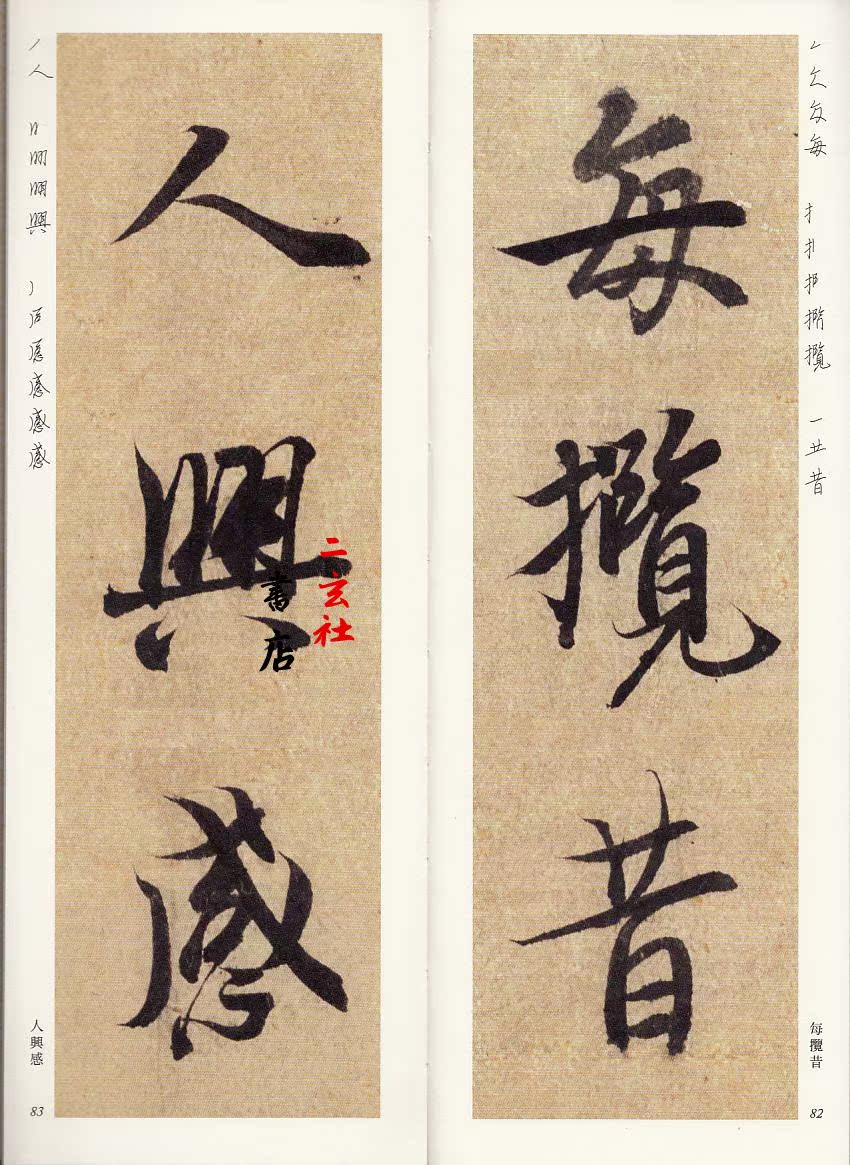 每攬昔
每攬昔
82
人興感
二玄社
書店
人興感
83